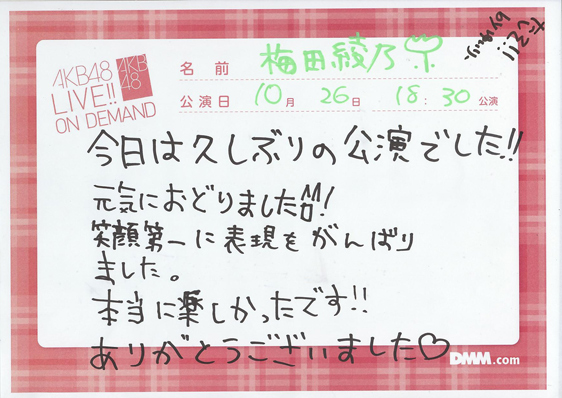 AKB48
LIVE!!
ON DEMAND
AKB
48
名前 梅田綾乃
公演日 10月 26日 18:30公演
今日は久しぶりの公演でした!!
元気におどりました!
笑顔第一に表現をがんばり
ました。
本当に楽しかったです!!
ありがとうございました♡
DMM.com